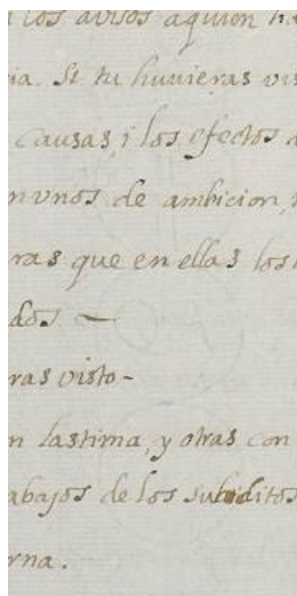 los avisos aquien h
ia. Si tu huuieras vis
causas, i los efectos d
n vnos de ambicion,
ras que en ellas los
dos —
ras visto -
n lastima, y otras con
abajos de los subditos
rna.